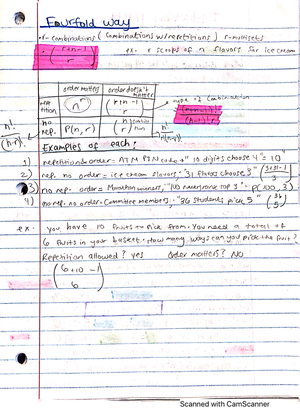 Fourfold way
r-combinations (combinations w/repetitions) r-multisets
(r+n-1
r)
ex. r scoops of n flavors for ice cream
order matters
order doesn't matter
repetition
n^r
(r+n-1
r)
type of combination
no rep.
P(n, r)
(n
r)
n!
(n-r)!
n!
r!(n-r)!
Examples of each:
1) repetition & order = ATM PIN code 4 "10 digits choose 4" = 10^4
2) rep. no order = ice cream flavors, "31 flavors choose 3" (3+31-1
3)
3) no rep. order = Marathon winners, "100 runners top 3" - P(100, 3)
4) no rep. no order. Committee members, "36 students pick 5" (36
5)
ex. you have 10 fruits to pick from. You need a total of
6 fruits in your basket. How many ways can you pick the fruit?
Repetition allowed? yes Order matters? No
(6+10-1
6)
Scanned with CamScanner